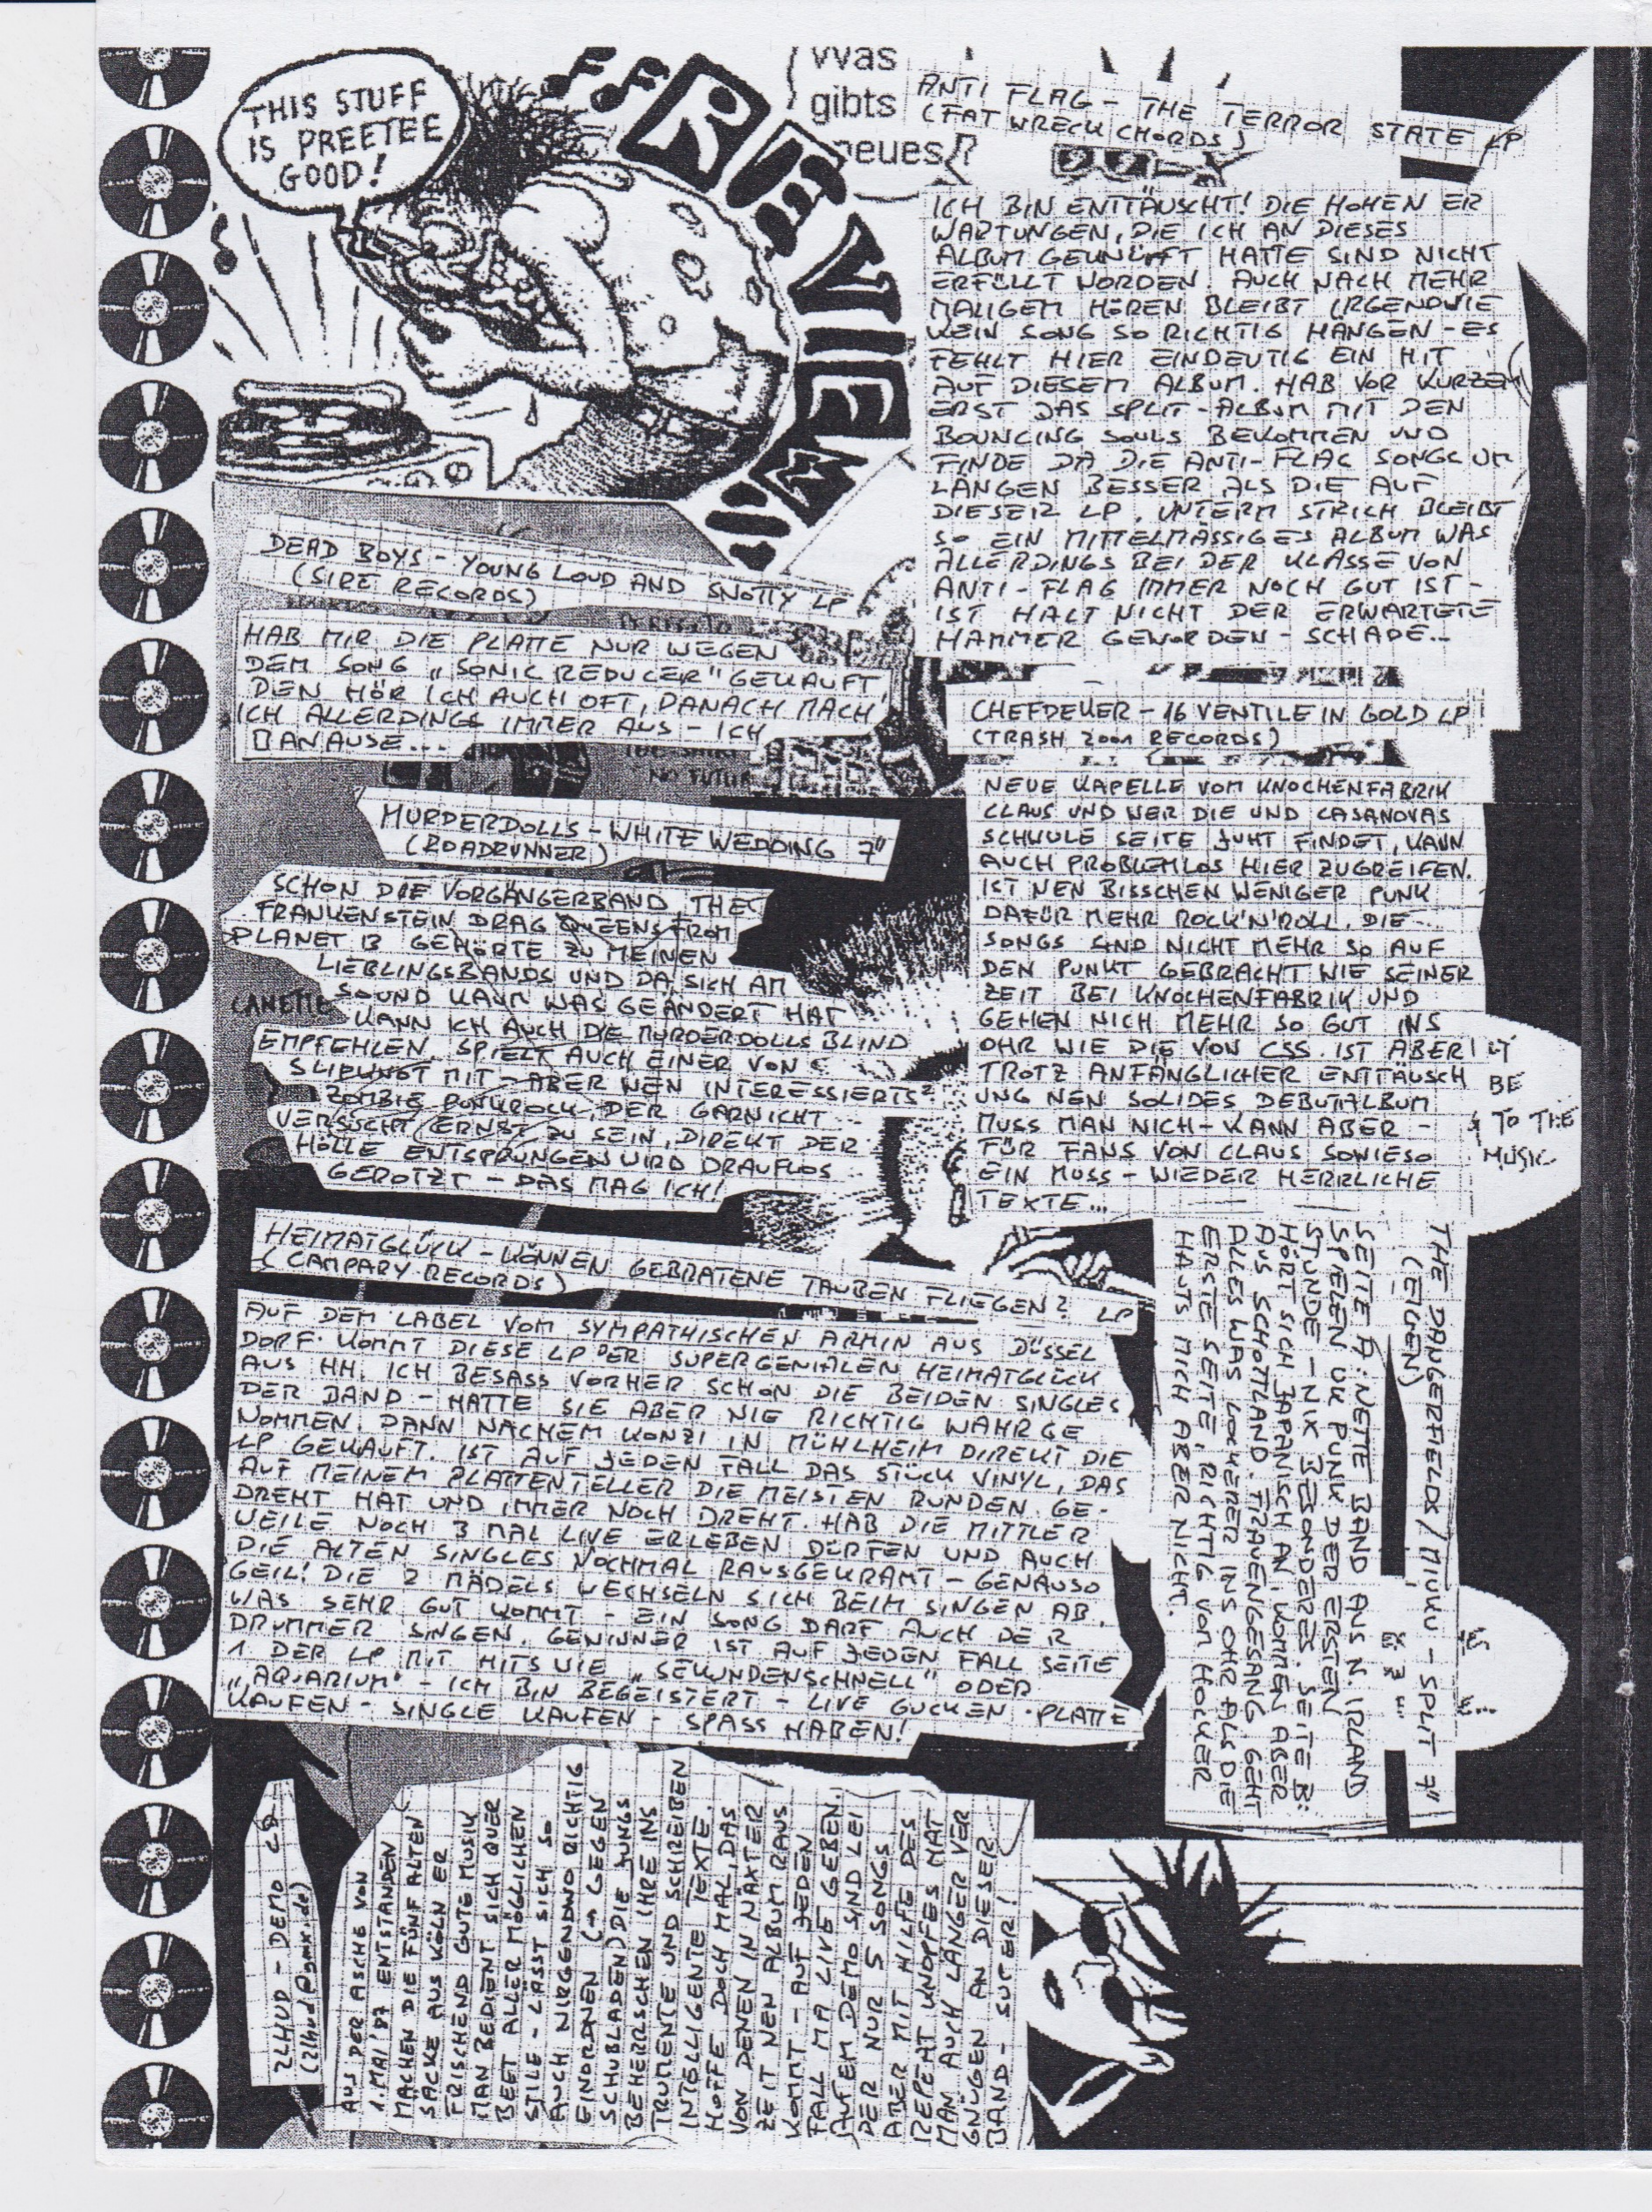 THIS STUFF
IS PREETEE
GOOD!
REVIEWS
Was
gibts
neues?
ANTI FLAG - THE TERROR STATE LP
(FAT WRECK CHORDS)
ICH BIN ENTTÄUSCHT! DIE HOHEN ER
WARTUNGEN, DIE ICH AN DIESES
ALBUM GEKNÜPFT HATTE SIND NICHT
ERFÜLLT WORDEN. AUCH NACH MEHR
MALIGEM HÖREN BLEIBT IRGENDWIE
KEIN SONG SO RICHTIG HÄNGEN - ES
FEHLT HIER EINDEUTIG EIN HIT
AUF DIESEM ALBUM. HAB VOR KURZEM
ERST DAS SPLIT-ALBUM MIT DEN
BOUNCING SOULS BEKOMMEN UND
FINDE DA DIE ANTI-FLAG SONGS UM
LÄNGEN BESSER ALS DIE AUF
DIESER LP. UNTERM STRICH BLEIBT
SO EIN MITTELMÄSSIGES ALBUM WAS
ALLERDINGS BEI DER KLASSE VON
ANTI-FLAG IMMER NOCH GUT IST -
IST HALT NICHT DER ERWARTETE
HAMMER GEWORDEN - SCHADE...
DEAD BOYS - YOUNG LOUD AND SNOTTY LP
(SIRE RECORDS)
HAB MIR DIE PLATTE NUR WEGEN
DEM SONG „SONIC REDUCER" GEKAUFT
DEN HÖR ICH AUCH OFT, DANACH MACH
ICH ALLERDINGS IMMER AUS - ICH
BANAUSE...
NO FUTUR
CHEFDENKER - 16 VENTILE IN GOLD LP
(TRASH 2001 RECORDS)
NEUE KAPELLE VOM KNOCHENFABRIK
CLAUS UND WER DIE UND CASANOVAS
SCHWULE SEITE JUHT FINDET, KANN
AUCH PROBLEMLOS HIER ZUGREIFEN.
IST NEN BISSCHEN WENIGER PUNK
DAFÜR MEHR ROCK'N'ROLL. DIE
SONGS SIND NICHT MEHR SO AUF
DEN PUNKT GEBRACHT WIE SEINER
ZEIT BEI KNOCHENFABRIK UND
GEHEN NICH MEHR SO GUT INS
OHR WIE DIE VON CSS. IST ABER
TROTZ ANFÄNGLICHER ENTTÄUSCH
UNG NEN SOLIDES DEBUTALBUM
MUSS MAN NICH - KANN ABER -
FÜR FANS VON CLAUS SOWIESO
EIN MUSS - WIEDER HERRLICHE
TEXTE...
BE
TO THE
MUSIC
MURDERDOLLS - WHITE WEDDING 7"
(ROADRUNNER)
SCHON DIE VORGÄNGERBAND THE
FRANKENSTEIN DRAG QUEENS FROM
PLANET 13 GEHÖRTE ZU MEINEN
LIEBLINGSBANDS UND DA SICH AM
SOUND KAUM WAS GEÄNDERT HAT
KANN ICH AUCH DIE MURDERDOLLS BLIND
EMPFEHLEN. SPIELT AUCH EINER VON
SLIPKNOT MIT - ABER WEN INTERESSIERTS?
ZOMBIE PUNKROCK, DER GARNICHT
VERSUCHT ERNST ZU SEIN, DIREKT DER
HÖLLE ENTSPRUNGEN WIRD DRAUFLOS
GEROTZT - DAS MAG ICH!
HEIMATGLÜCK - KÖNNEN GEBRATENE TAUBEN FLIEGEN? LP
(CAMPARY RECORDS)
AUF DEM LABEL VOM SYMPATHISCHEN ARMIN AUS DÜSSEL
DORF KOMMT DIESE LP DER SUPERGENIALEN HEIMATGLÜCK
AUS HH. ICH BESASS VORHER SCHON DIE BEIDEN SINGLES
DER BAND - HATTE SIE ABER NIE RICHTIG WAHRGE
NOMMEN. DANN NACHEM KONZI IN MÜHLHEIM DIREKT DIE
LP GEKAUFT. IST AUF JEDEN FALL DAS STÜCK VINYL, DAS
AUF MEINEM PLATTENTELLER DIE MEISTEN RUNDEN GE-
DREHT HAT UND IMMER NOCH DREHT. HAB DIE MITTLER
WEILE NOCH 3 MAL LIVE ERLEBEN DÜRFEN UND AUCH
DIE ALTEN SINGLES NOCHMAL RAUSGEKRAMT - GENAUSO
GEIL! DIE 2 MÄDELS WECHSELN SICH BEIM SINGEN AB,
WAS SEHR GUT KOMMT - EIN SONG DARF AUCH DER
DRUMMER SINGEN. GEWINNER IST AUF JEDEN FALL SEITE
1 DER LP MIT HITS WIE „SEKUNDENSCHNELL" ODER
„AQUARIUM" - ICH BIN BEGEISTERT - LIVE GUCKEN - PLATTE
KAUFEN - SINGLE KAUFEN - SPASS HABEN!
THE DANGERFIELDS / MIUKU - SPLIT 7"
(EIGEN)
SEITE A: NETTE BAND AUS N. IRLAND
SPIELEN UK PUNK DER ERSTEN
STUNDE - NIX BESONDERES. SEITE B:
HÖRT SICH JAPANISCH AN, KOMMEN ABER
AUS SCHOTTLAND. FRAUENGESANG GEHT
ALLES WAS LOCKERER INS OHR ALS DIE
ERSTE SEITE, RICHTIG VOM HOCKER
HAUTS MICH ABER NICHT.
2LHUD - DEMO CD
(2lhud@gmx.de)
AUS DER ASCHE VON
1. MAI '87 ENTSTANDEN
MACHEN DIE FÜNF ALTEN
SÄCKE AUS KÖLN ER
FRISCHEND GUTE MUSIK
MAN BEDIENT SICH QUER
BEET ALLER MÖGLICHEN
STILE - LÄSST SICH SO
AUCH NIRGENDWO RICHTIG
EINORDNEN (→ GEGEN
SCHUBLADEN) DIE JUNGS
BEHERRSCHEN IHRE INS
TRUMENTE UND SCHREIBEN
INTELLIGENTE TEXTE.
HOFFE DOCH MAL, DAS
VON DENEN IN NÄXTER
ZEIT NEN ALBUM RAUS
KOMMT - AUF JEDEN
FALL MA LIVE GEBEN.
AUFEM DEMO SIND LEI
DER NUR 5 SONGS
ABER MIT HILFE DES
REPEAT KNOPFES HAT
MAN AUCH LÄNGER VER
GNÜGEN AN DIESER
BAND - SUPER!